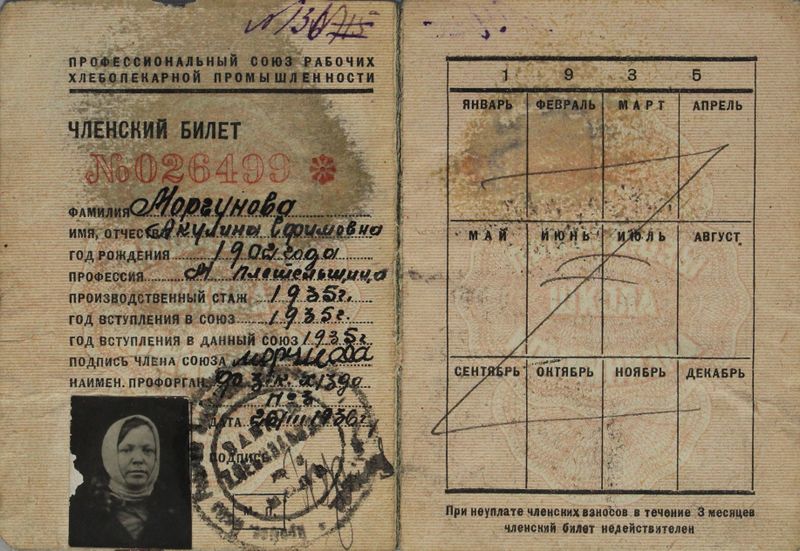 ПРОФЕССИОНАЛЬНЫЙ СОЮЗ РАБОЧИХ
ХЛЕБОПЕКАРНОЙ ПРОМЫШЛЕННОСТИ
ЧЛЕНСКИЙ БИЛЕТ
№026499
ФАМИЛИЯ Моргунова
ИМЯ, ОТЧЕСТВО Акулина Ефимовна
ГОД РОЖДЕНИЯ 1902 года
ПРОФЕССИЯ плетельщица
ПРОИЗВОДСТВЕННЫЙ СТАЖ 1935г.
ГОД ВСТУПЛЕНИЯ В СОЮЗ 1935г.
ГОД ВСТУПЛЕНИЯ В ДАННЫЙ СОЮЗ 1935г.
ПОДПИСЬ ЧЛЕНА СОЮЗА
НАИМЕН. ПРОФОРГАН.
№3
ДАТА 1936г
ПОДПИСЬ
М. П.
1 9 3 5
ЯНВАРЬ ФЕВРАЛЬ МАРТ АПРЕЛЬ
МАЙ ИЮНЬ ИЮЛЬ АВГУСТ
СЕНТЯБРЬ ОКТЯБРЬ НОЯБРЬ ДЕКАБРЬ
При неуплате членских взносов в течение 3 месяцев
членский билет недействителен